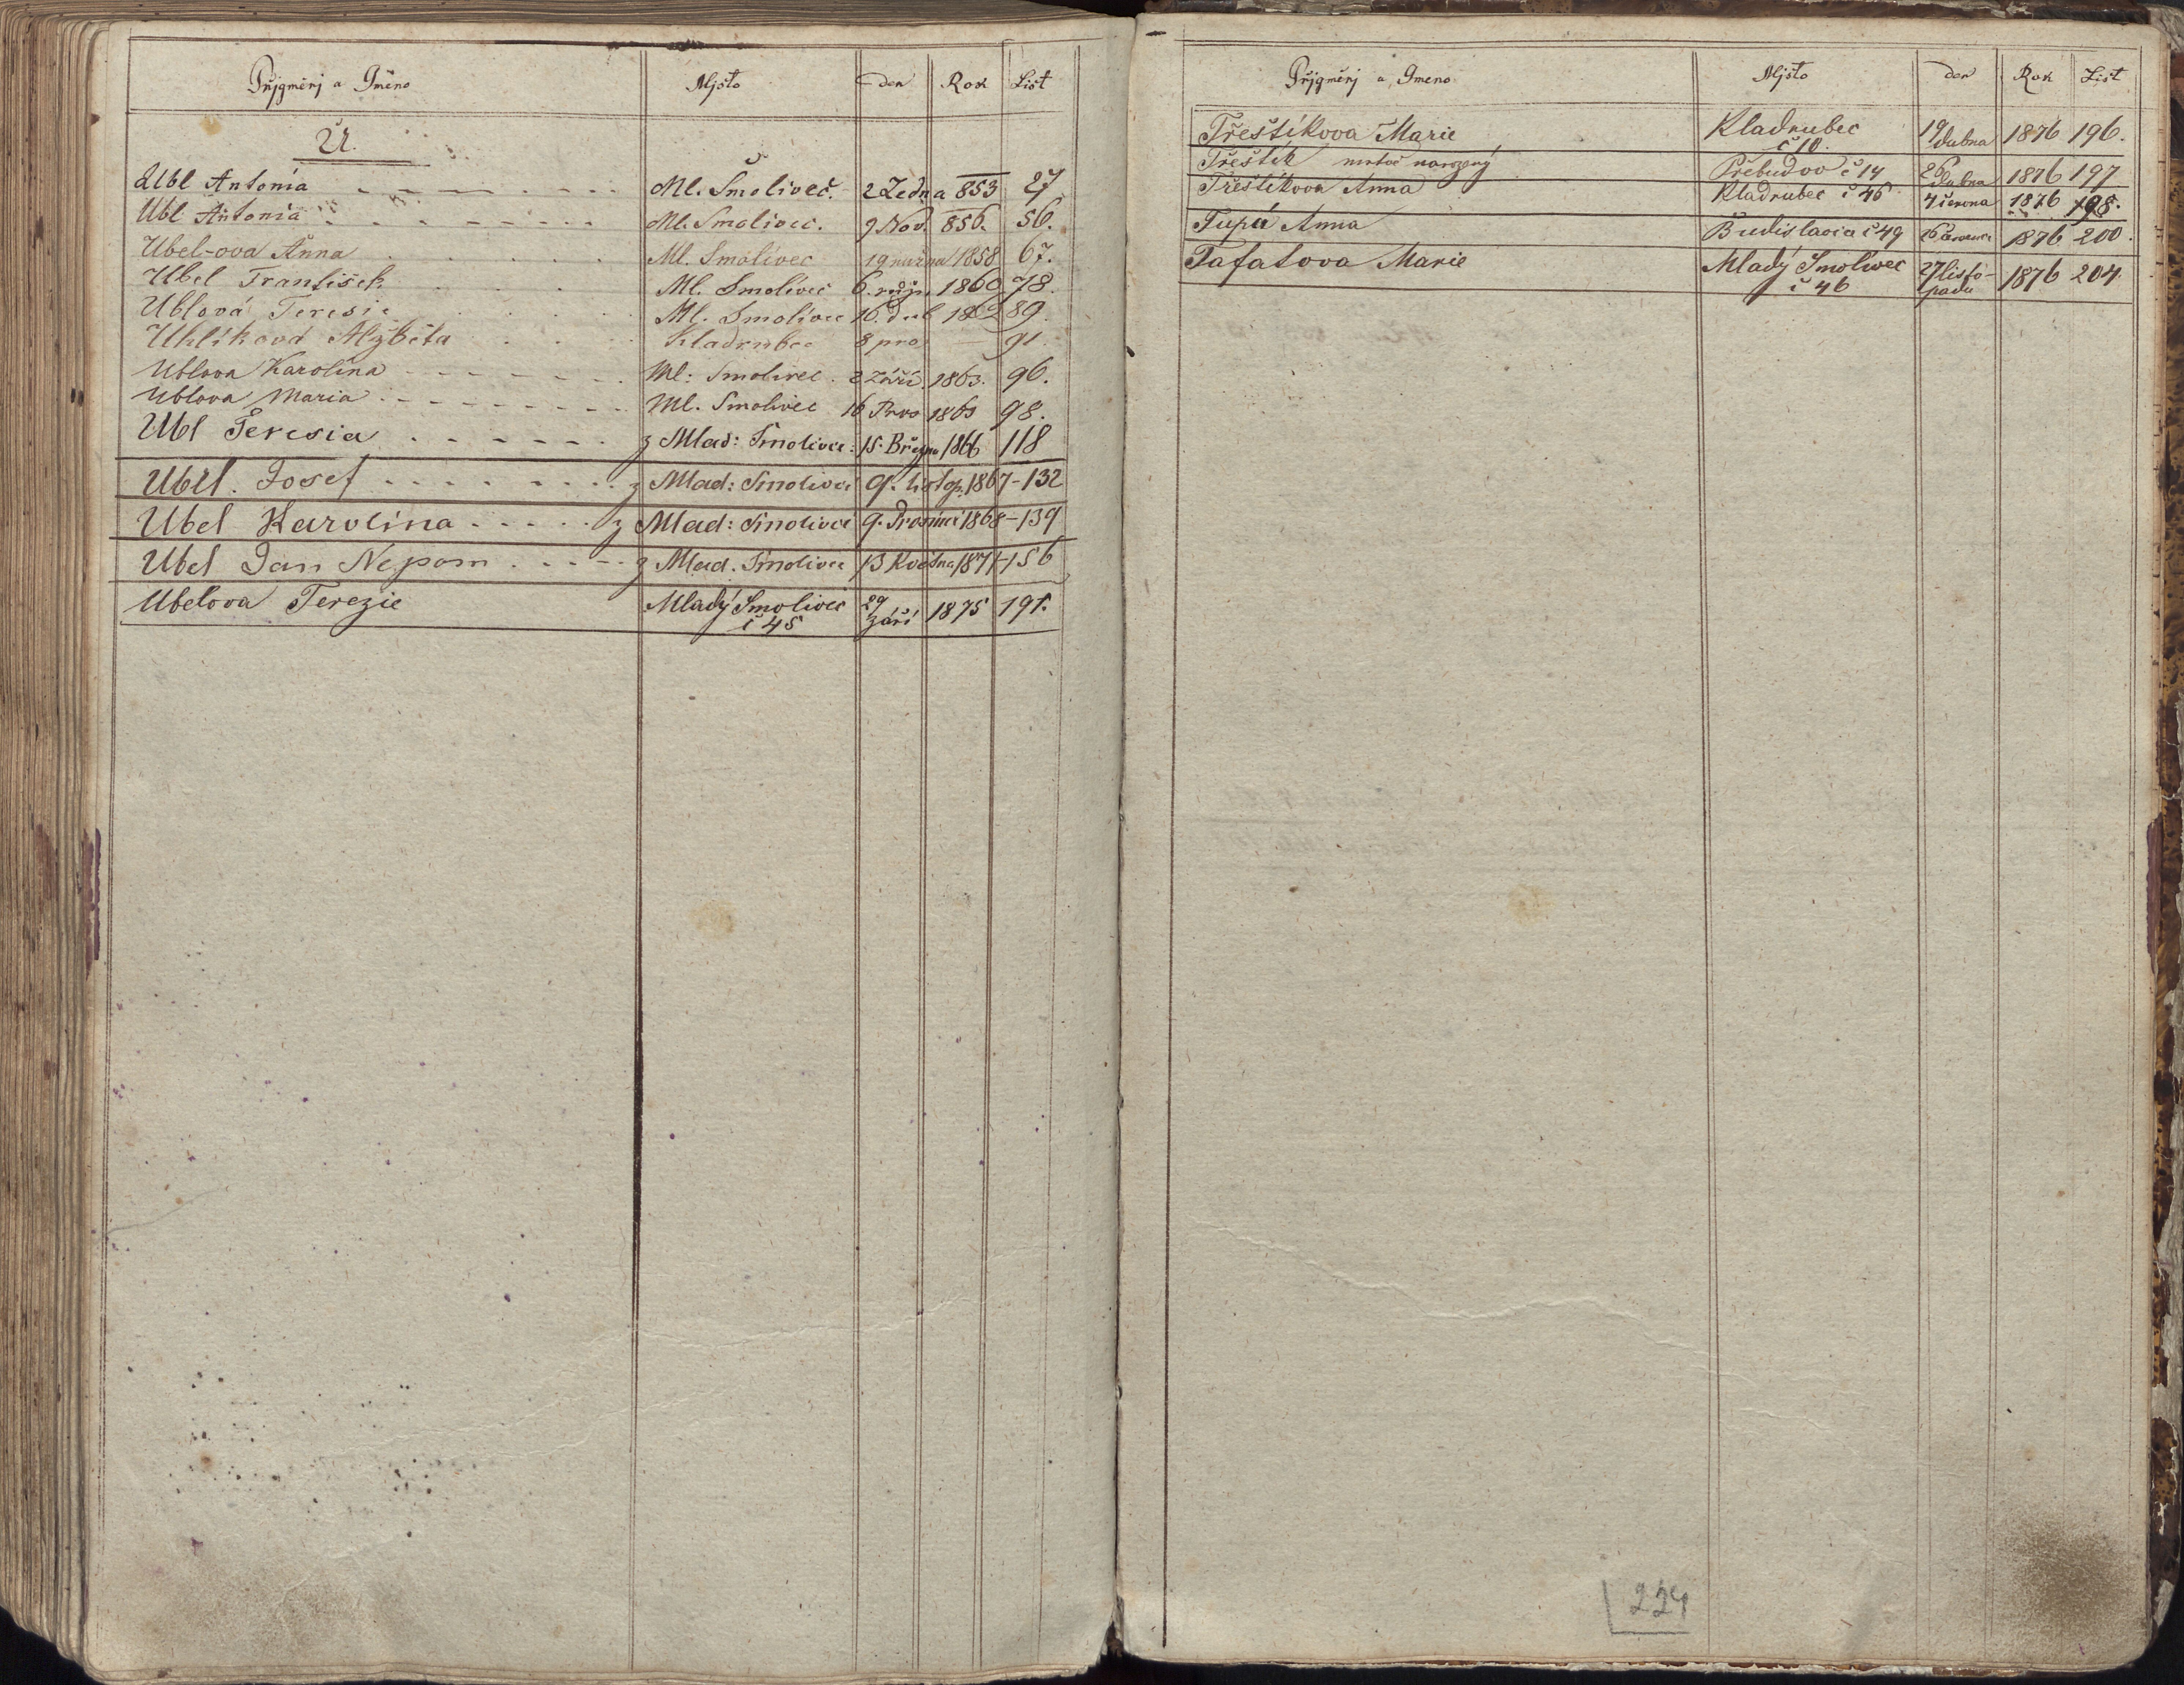 Přjgměnj a Gméno Mjsto den Rok List
U.
Ubl Antonia Ml. Smoliveč. 2 Ledna 853 27
Ubl Antonia Ml. Smolivec. 9 Nov. 856. 56.
Ubel-ova Anna Ml. Smolivec 19 1858 67.
Ubel František Ml. Smolivec 6. 1860 78.
Ublová Teresie Ml. Smolivec 16. dub 1862 89.
Uhlíková Alžběta Kladrubec 8 pro — 91.
Ublova Karolina Ml: Smolivec. 2 Září. 1863. 96.
Ublova Maria Ml. Smolivec 16 Pros 1863 98.
Ubl Teresia z Mlad: Smolivce: 15. Března 1866 118
Ubel. Josef z Mlad: Smolivce 9. listop. 1867-132
Ubel Karolina z Mlad: Smolivce 9. Prosince 1868-139
Ubel Jan Nepom z Mlad. Smolivce 13 Května 1871-156
Ubelova Terezie Mladý Smolivec 29 1875 191.
č 45 září
Přjgměnj a Gmeno Mjsto den Rok List
Třeštíkova Marie Kladrubec 19 1876 196.
č 10. dubna
Třeštík mrtvě narozený Přebudov č 14 26 dubna 1876 197
Třeštíkova Anna Kladrubec č 46 4 června 1876 198.
Tupá Anna Budislavia č 49 1876 200.
Tafatova Marie Mladý Smolivec 27 listo- 1876 204
č 46 padu
224